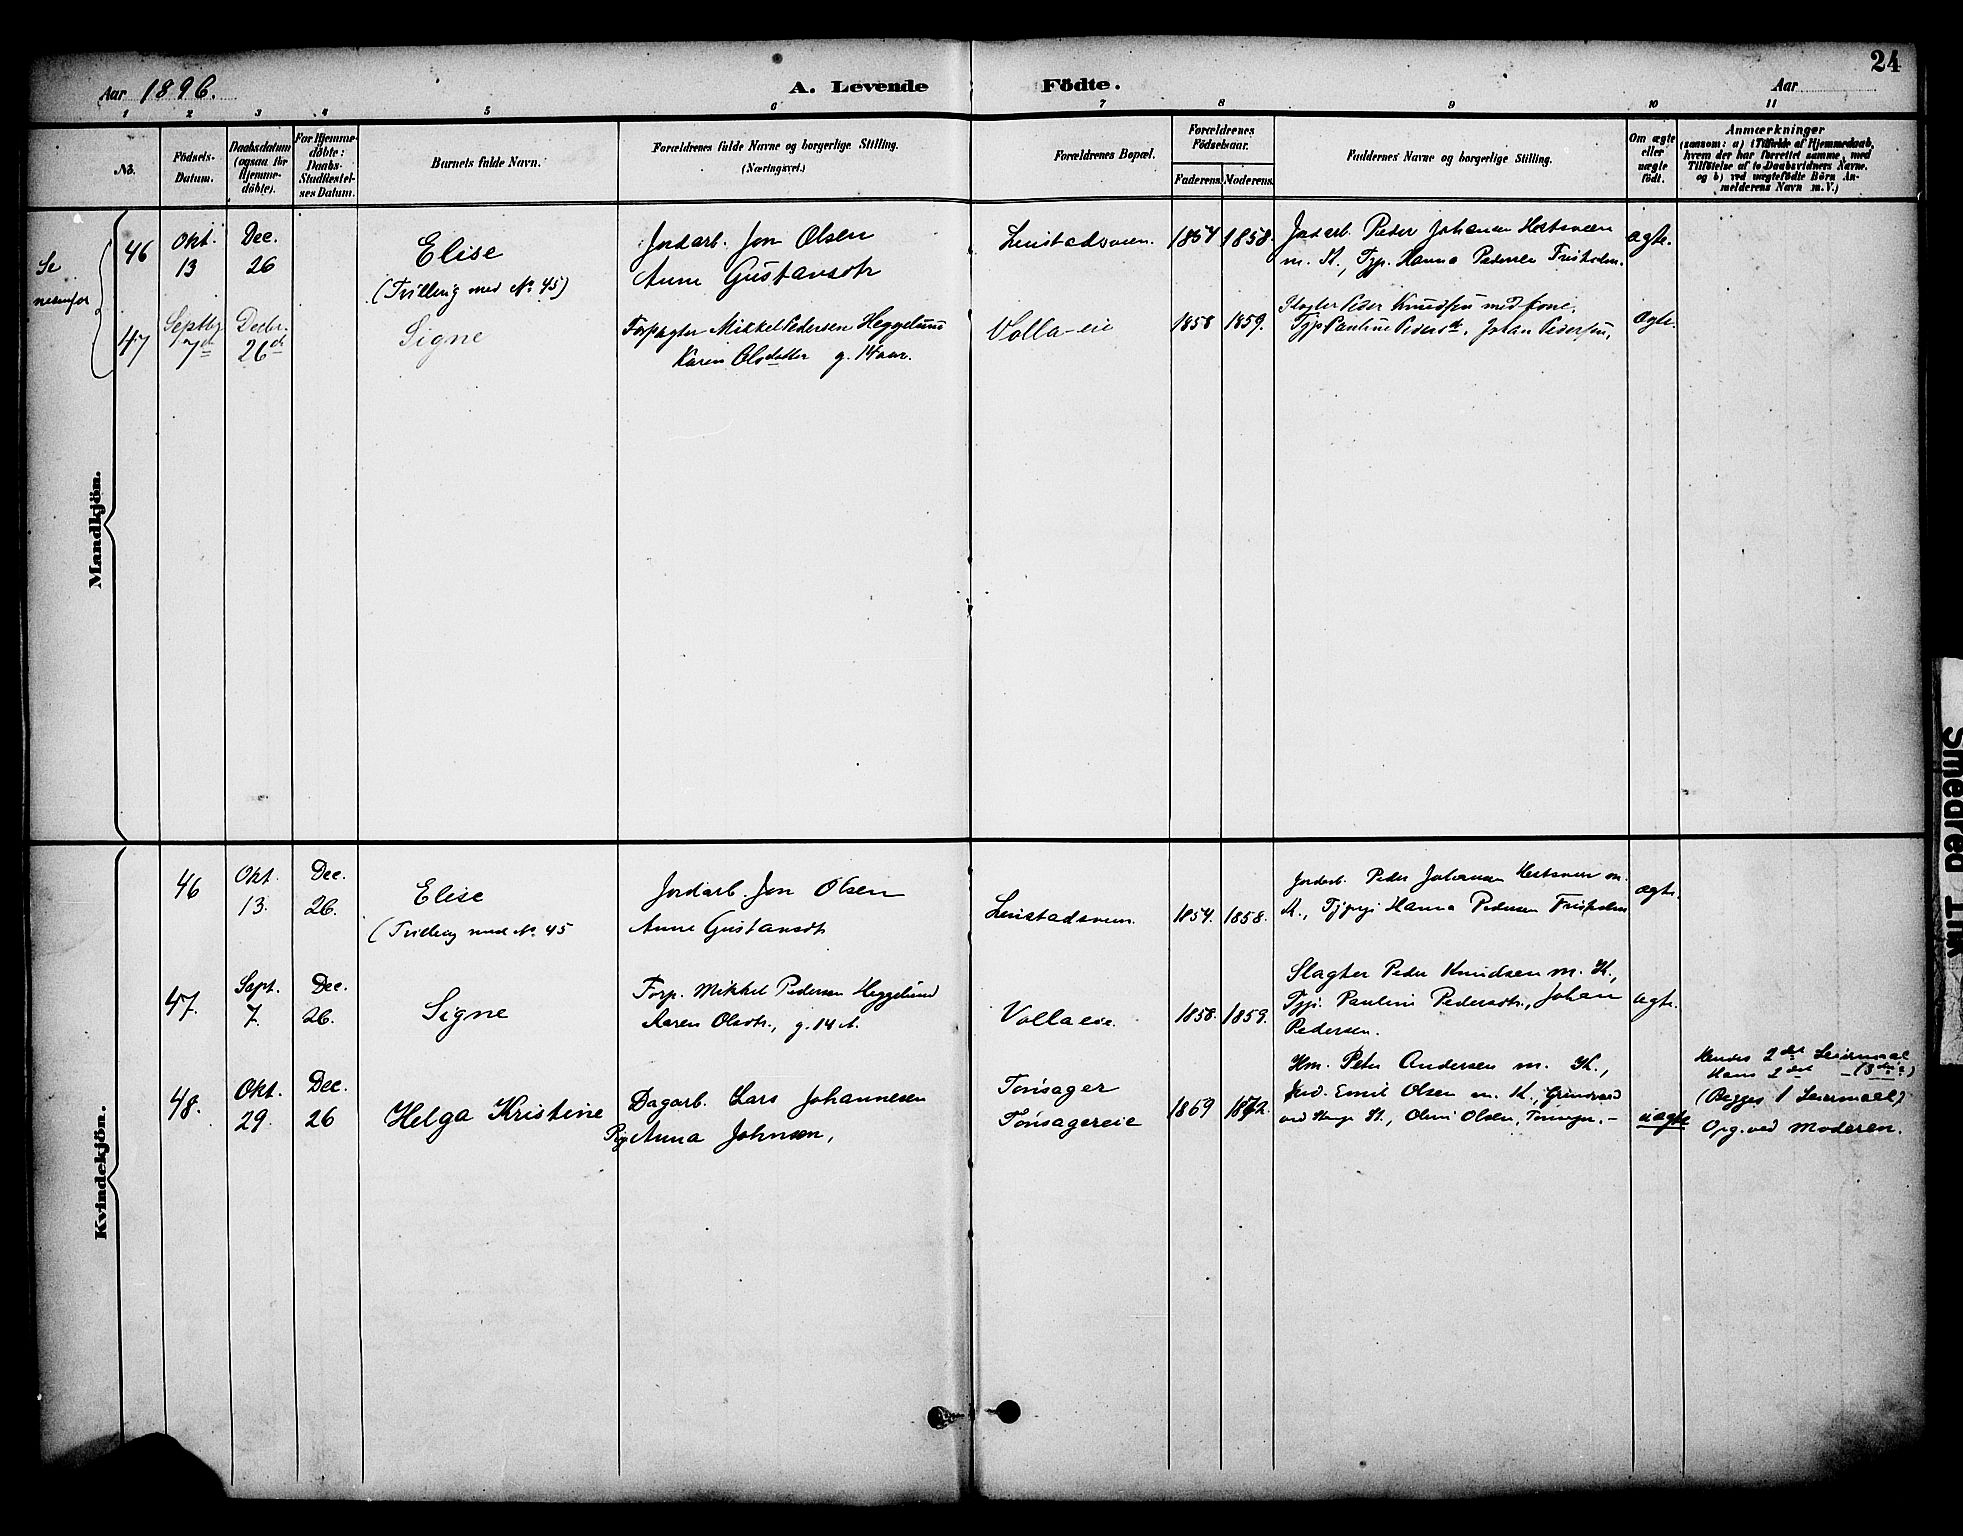 24
Aar 1896.
A. Levende Födte.
Aar
1 2 3 4 5 6 7 8 9 10 11
No.
Födsels-Datum.
Daabsdatum (ogsaa for Hjemmedöbte).
For Hjemmedöbte: Daabs-Stadfæstelses Datum.
Barnets fulde Navn.
Forældrenes fulde Navne og borgerlige Stilling. (Næringsvei.)
Forældrenes Bopæl.
Forældrenes Födselsaar.
Faderens. Moderens.
Faddernes Navne og borgerlige Stilling.
Om ægte eller uægte födt.
Anmærkninger
(saasom: a) i Tilfælde af Hjemmedaab, hvem der har forrettet samme, med Tilföielse af to Daabsvidners Navne. og b) ved uægtefödte Börn Anmelderens Navn m. V.)
Mandkjön.
Se nedenfor
46 Okt. 13 Dec. 26 Elise (Tvilling med No. 45)
Jordarb. Jon Olsen
Anne Gustavsdtr
1854 1858. Jordarb. Peder Johansen
m. K., Hanna Pedersen
ægte.
47 Septbr 7de Decbr. 26de Signe
Forpagter Mikkel Pedersen Heggelund
Karen Olsdatter g. 14 aar.
Volla-eie 1858 1859.
Slagter Peder Knudsen med kone.
Pauline Pedersdt, Johan Pedersen,
ægte.
Kvindekjön.
46 Okt. 13. Dec. 26. Elise
(Tvilling med No. 45
Jordarb. Jon Olsen
Anne Gustavsdtr
1854. 1858.
Jordarb. Peder Johansen m.
K., Hanna Pedersen
ægte.
47. Sept. 7. Dec. 26. Signe
Forp. Mikkel Pedersen Heggelund
Karen Olsdtr., g. 14 A.
Vollaeie. 1858. 1859.
Slagter Peder Knudsen m. K.,
Pauline Pedersdtr., Johan
Pedersen.
ægte.
48. Okt. 29. Dec. 26 Helga Kristine
Dagarb. Lars Johannesen
Pige Anna Johnsen,
Tonsager
Tonsagereie
1869 1872.
Hm. Peter Andersen m. K.,
Emil Olsen m. K.,
Olsen,
uægte
Hendes 2det Leiermaal
Hans 2det
(Begges 1 Leiermaal)
Opg. ved Moderen.
Smedred Tlk